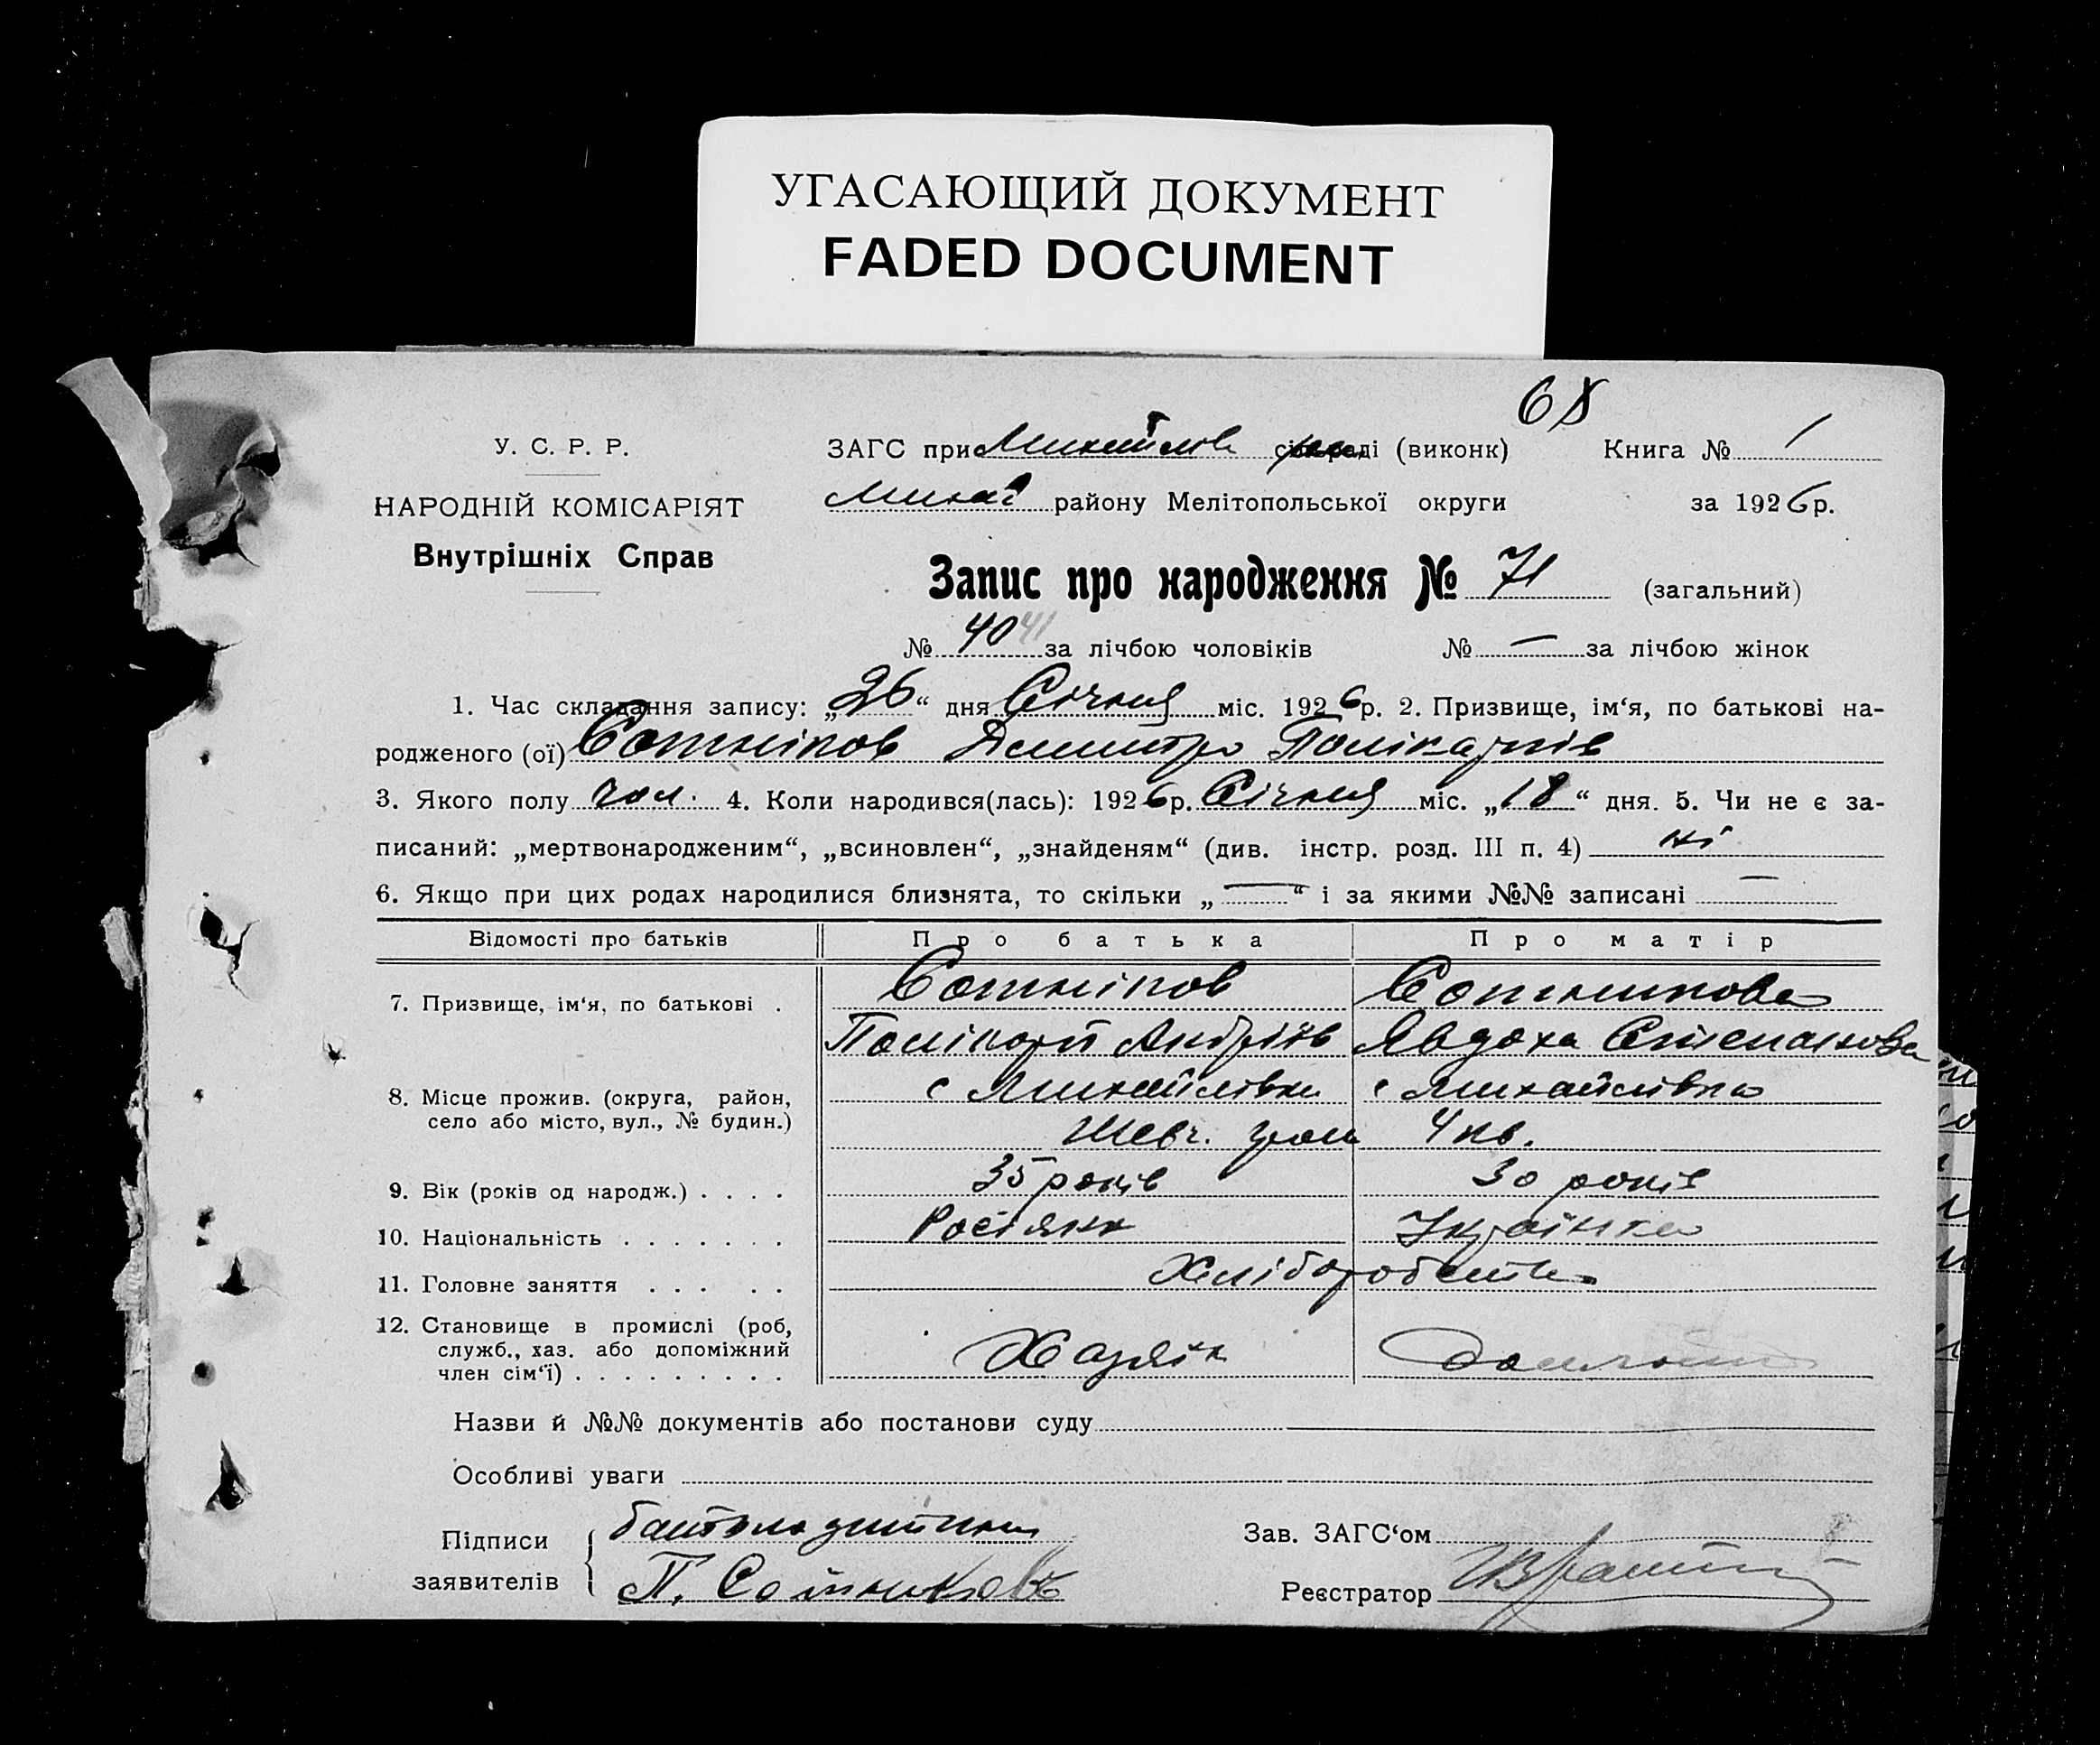 УГАСАЮЩИЙ ДОКУМЕНТ
FADED DOCUMENT
68
У. С. Р. Р.
НАРОДНІЙ КОМІСАРІЯТ
Внутрішніх Справ
ЗАГС при Михайлів (виконк) Книга № 1
Михай району Мелітопольської округи за 1926 р.
Запис про народження № 71 (загальний)
№ 40 41 за лічбою чоловіків № — за лічбою жінок
1. Час складання запису: „26“ дня Січня міс. 1926 р. 2. Призвище, ім‘я, по батькові на-
родженого (ої) Сотніков Дмитро Полікарпів
3. Якого полу чол. 4. Коли народився(лась): 1926 р. Січня міс. „18“ дня. 5. Чи не є за-
писаний: „мертвонародженим“, „всиновлен“, „знайденям“ (див. інстр. розд. III п. 4) ні
6. Якщо при цих родах народилися близнята, то скільки „—“ і за якими №№ записані —
Відомості про батьків Про батька Про матір
7. Призвище, ім‘я, по батькові . Сотніков Сотникова
Полікарп Андріїв Явдоха Степанова
8. Місце прожив. (округа, район, село або місто, вул., № будин.) с Михайлівки с Михайлівка
Шевч. гром 4 кв.
9. Вік (років од народж.) . . . . 35 років 30 років
10. Національність . . . . . . . Росіянин Українка
11. Головне заняття . . . . . Хлібороб
12. Становище в промислі (роб, служб., хаз. або допоміжний член сім‘ї) . . . . . . . . . Хазяїн
Назви й №№ документів або постанови суду
Особливі уваги
Підписи заявителів батько дитини
П. Сотников
Зав. ЗАГС‘ом
Реєстратор